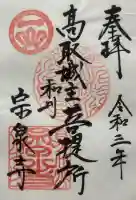 奉拝
令和二年
高取城主菩提所
和州
宗泉寺